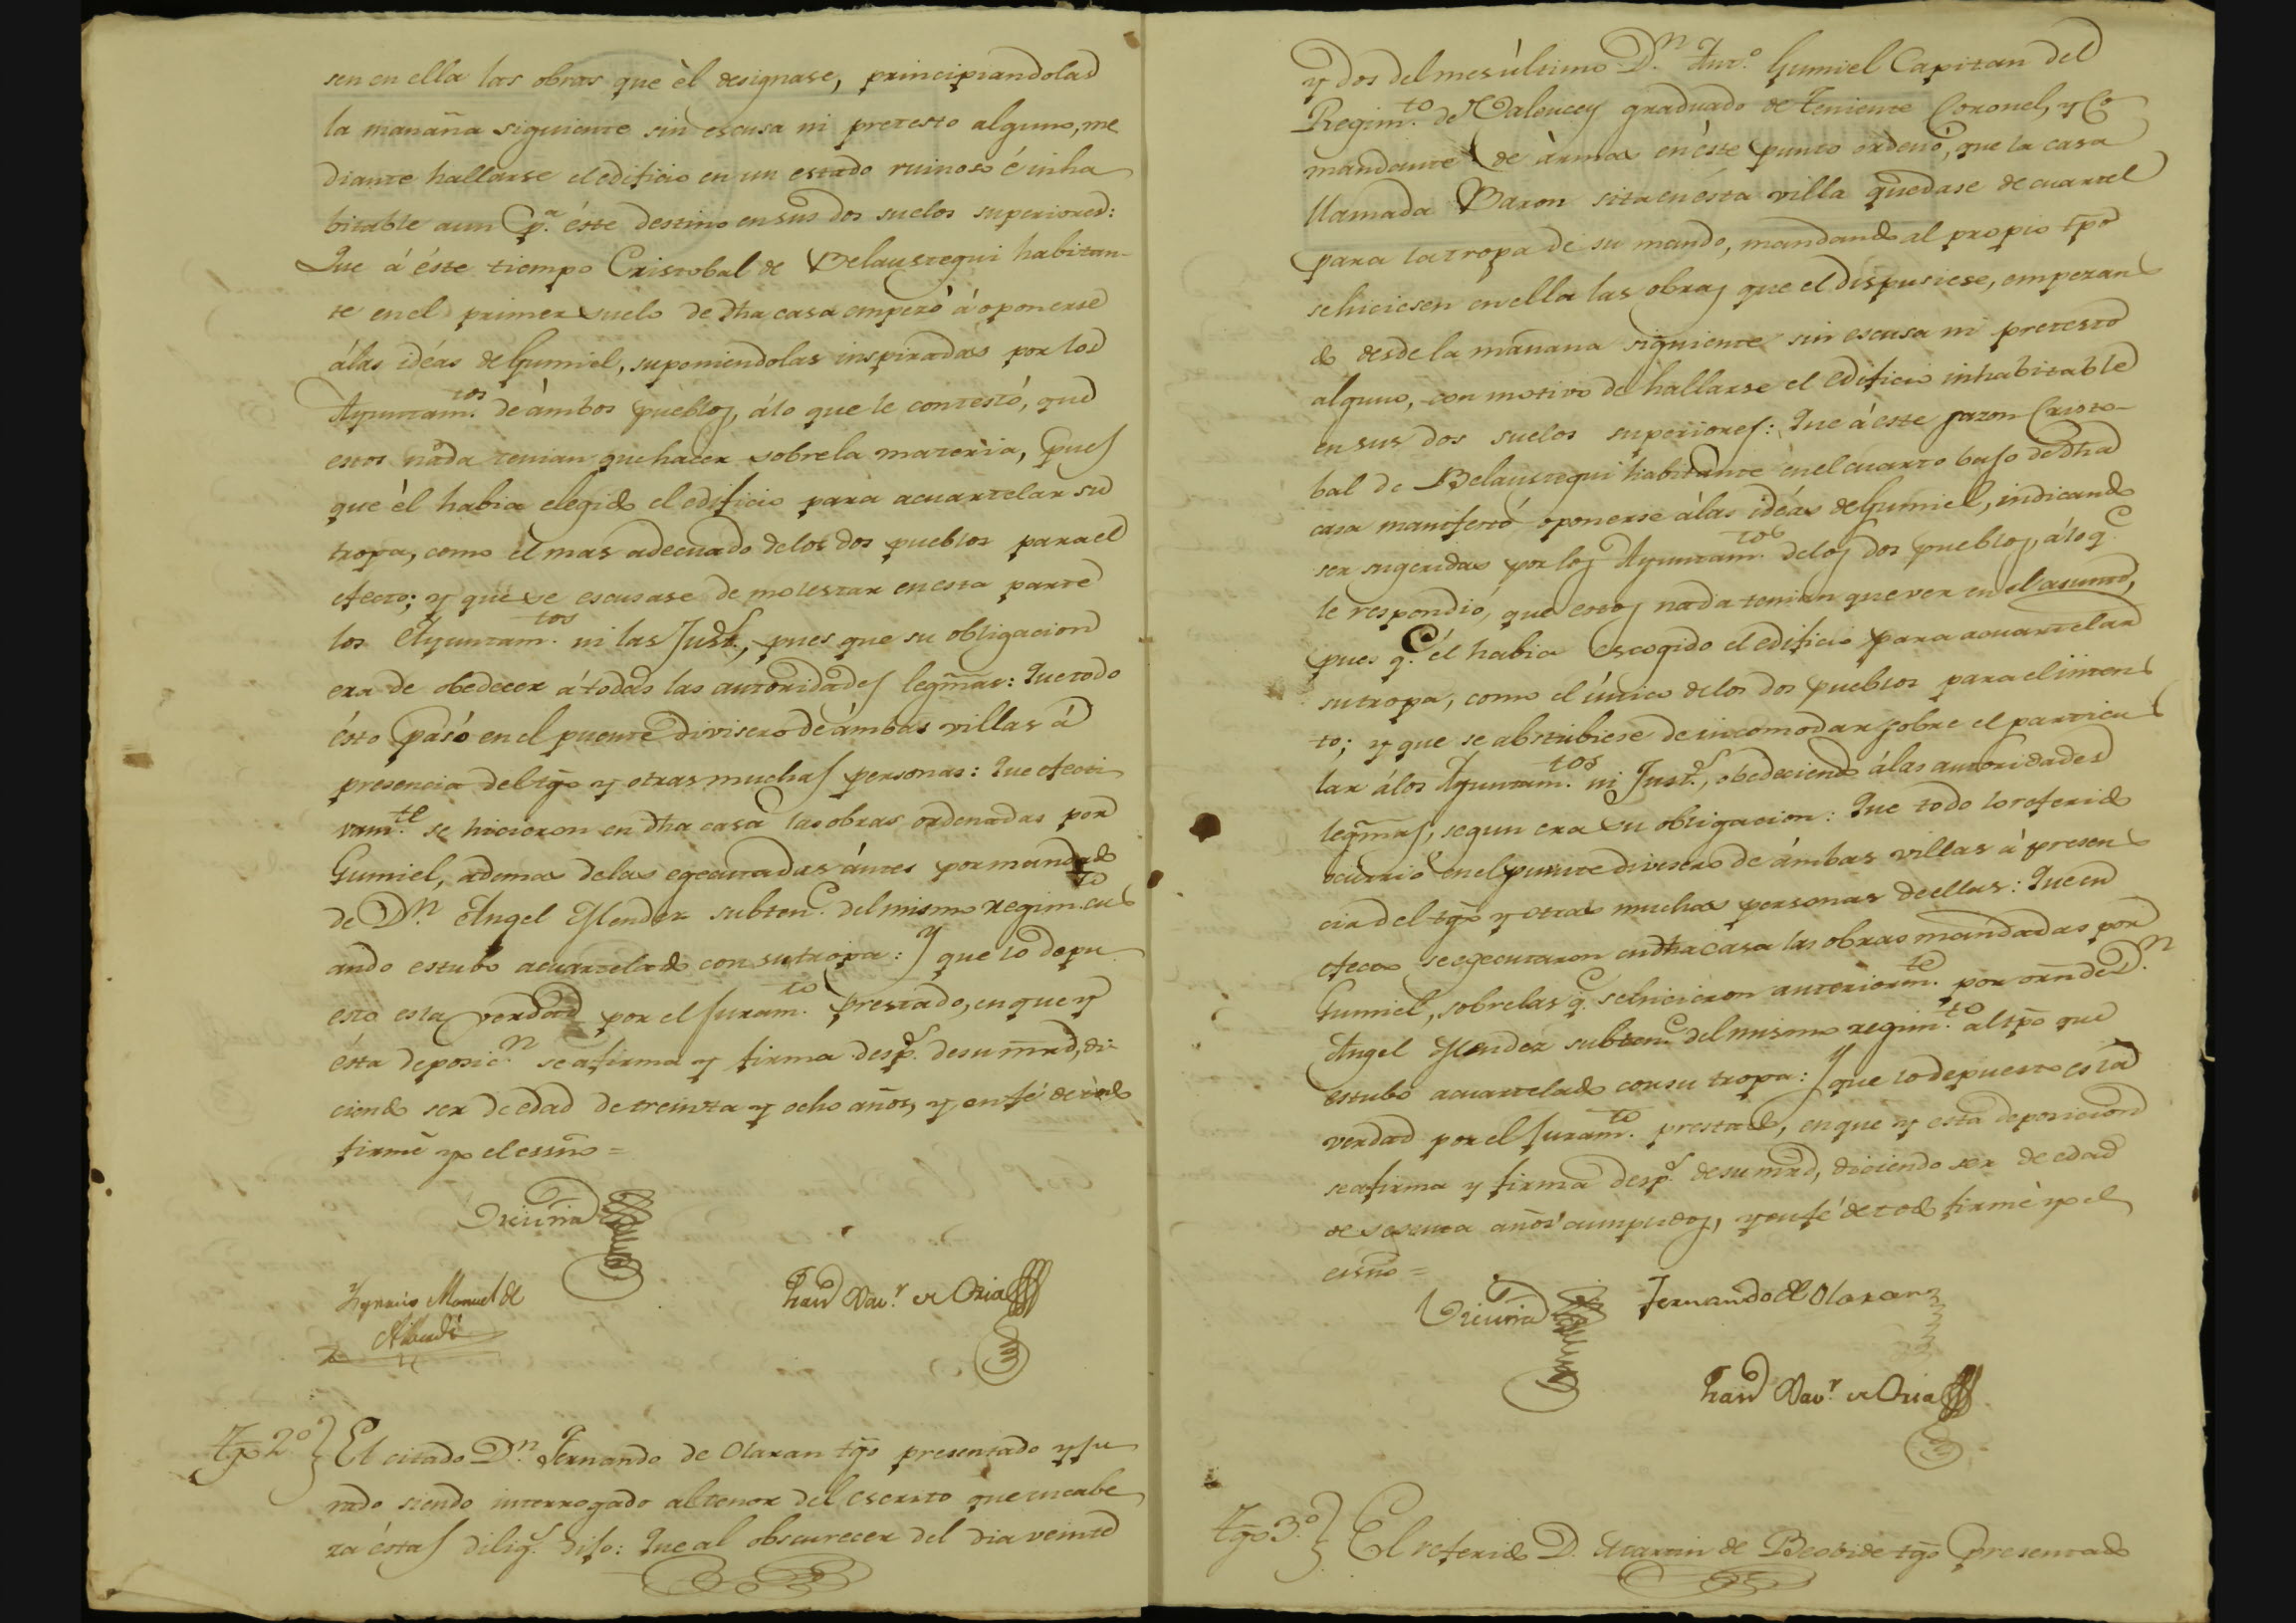 sen en ella las obras que èl designase, principiandolas
la manaña siguiente sin escusa ni pretesto alguno, me
diante hallarse el edificio en un estado ruinoso é inha
bitable aun p.ª éste destino en sus dos suelos superiores:
Que á éste tiempo Cristobal de Belaustegui habitan-
te en el primer suelo de dha casa empezò á oponerse
álas idéas de Gumiel, suponiendolas inspiradas por los
Ayuntam.tos de ámbos pueblos, álo que le contestó, que
estos nada tenian que hacer sobre la materia, pues
que èl habia elegido el edificio para acuartelar su
tropa, como el mas adecuado de los dos pueblos para el
efecto; y que se escusase de molestar en esta parte
los Ayuntam.tos ni las Just.s, pues que su obligacion
era de obedecer á todas las autoridades legmas: Que todo
ésto pasó en el puente divisero de ámbas villas á
presencia del tgo y otras muchas personas: Que efecti
vam.te se hicieron en dha casa las obras ordenadas por
Gumiel, ademas de las egecutadas ántes por mandado
de D.n Angel Mendez subten.e del mismo regim.to cu
ando estubo acuartelado con su tropa: Y que lo depu
esto es la verdad por el juram.to prestado, en que y
ésta deposic.n se afirma y firma desp.s de su mrd, di-
ciendo ser de edad de treinta y ocho años, y en fé de todo
firmé yo el essno =
Ygnacio Manuel de
Fran.co Xav.r de Oria
Tgo 2.º } El citado D.n Fernando de Olaran tgo presentado y ju
rado siendo interrogado al tenor del escrito que encabe
za éstas dilig.s dijo: Que al obscurecer del dia veinte
y dos del mes último D.n Ant.º Gumiel Capitan del
Regim.to de graduado de Teniente Coronel, y Co
mandante de àrmas en éste punto ordenó, que la casa
llamada Baron sita en ésta villa quedase de cuartel
para la tropa de su mando, mandando al propio tpo
se hiciesen en ella las obras que el dispusiese, empezan
do desde la mañana siguiente sin escusa ni pretesto
alguno, con motivo de hallarse el edificio inhabitable
en sus dos suelos superiores: Que á este sazon Cristo-
bal de Belaustegui habitante en el cuarto bajo de dha
casa manifestó oponerse álas idéas de Gumiel, indicando
ser sugeridas por los Ayuntam.tos de los dos pueblos, álo q.e
le respondió, que estos nada tenian que ver en el asunto,
pues q.e él habia escogido el edificio para acuartelar
su tropa, como el único de los dos pueblos para el inten
to; y que se abstubiese de incomodar sobre el particu
lar álos Ayuntam.tos ni Just.s, obedeciendo álas autoridades
legmas, segun era su obligacion: Que todo lo referido
ocurrió en el puente divisero de ámbas villas à presen
cia del tgo y otras muchas personas de ellas: Que en
efecto se egecutaron en dha casa las obras mandadas por
Gumiel, sobre las q.e se hicieron anteriorm.te por orñ de D.n
Angel Mendez subten.e del mismo regim.to al tpo que
estubo acuartelado con su tropa: Y que lo depuesto es la
verdad por el juram.to prestado, en que y esta deposicion
se afirma y firma desp.s de su mrd, diciendo ser de edad
de sesenta años cumplidos, y en fé de todo firmè yo el
essno =
Fernando de Olaran
Fran.co Xav.r de Oria
Tgo 3.º } El referido D. Martin de Beobide tgo presentado